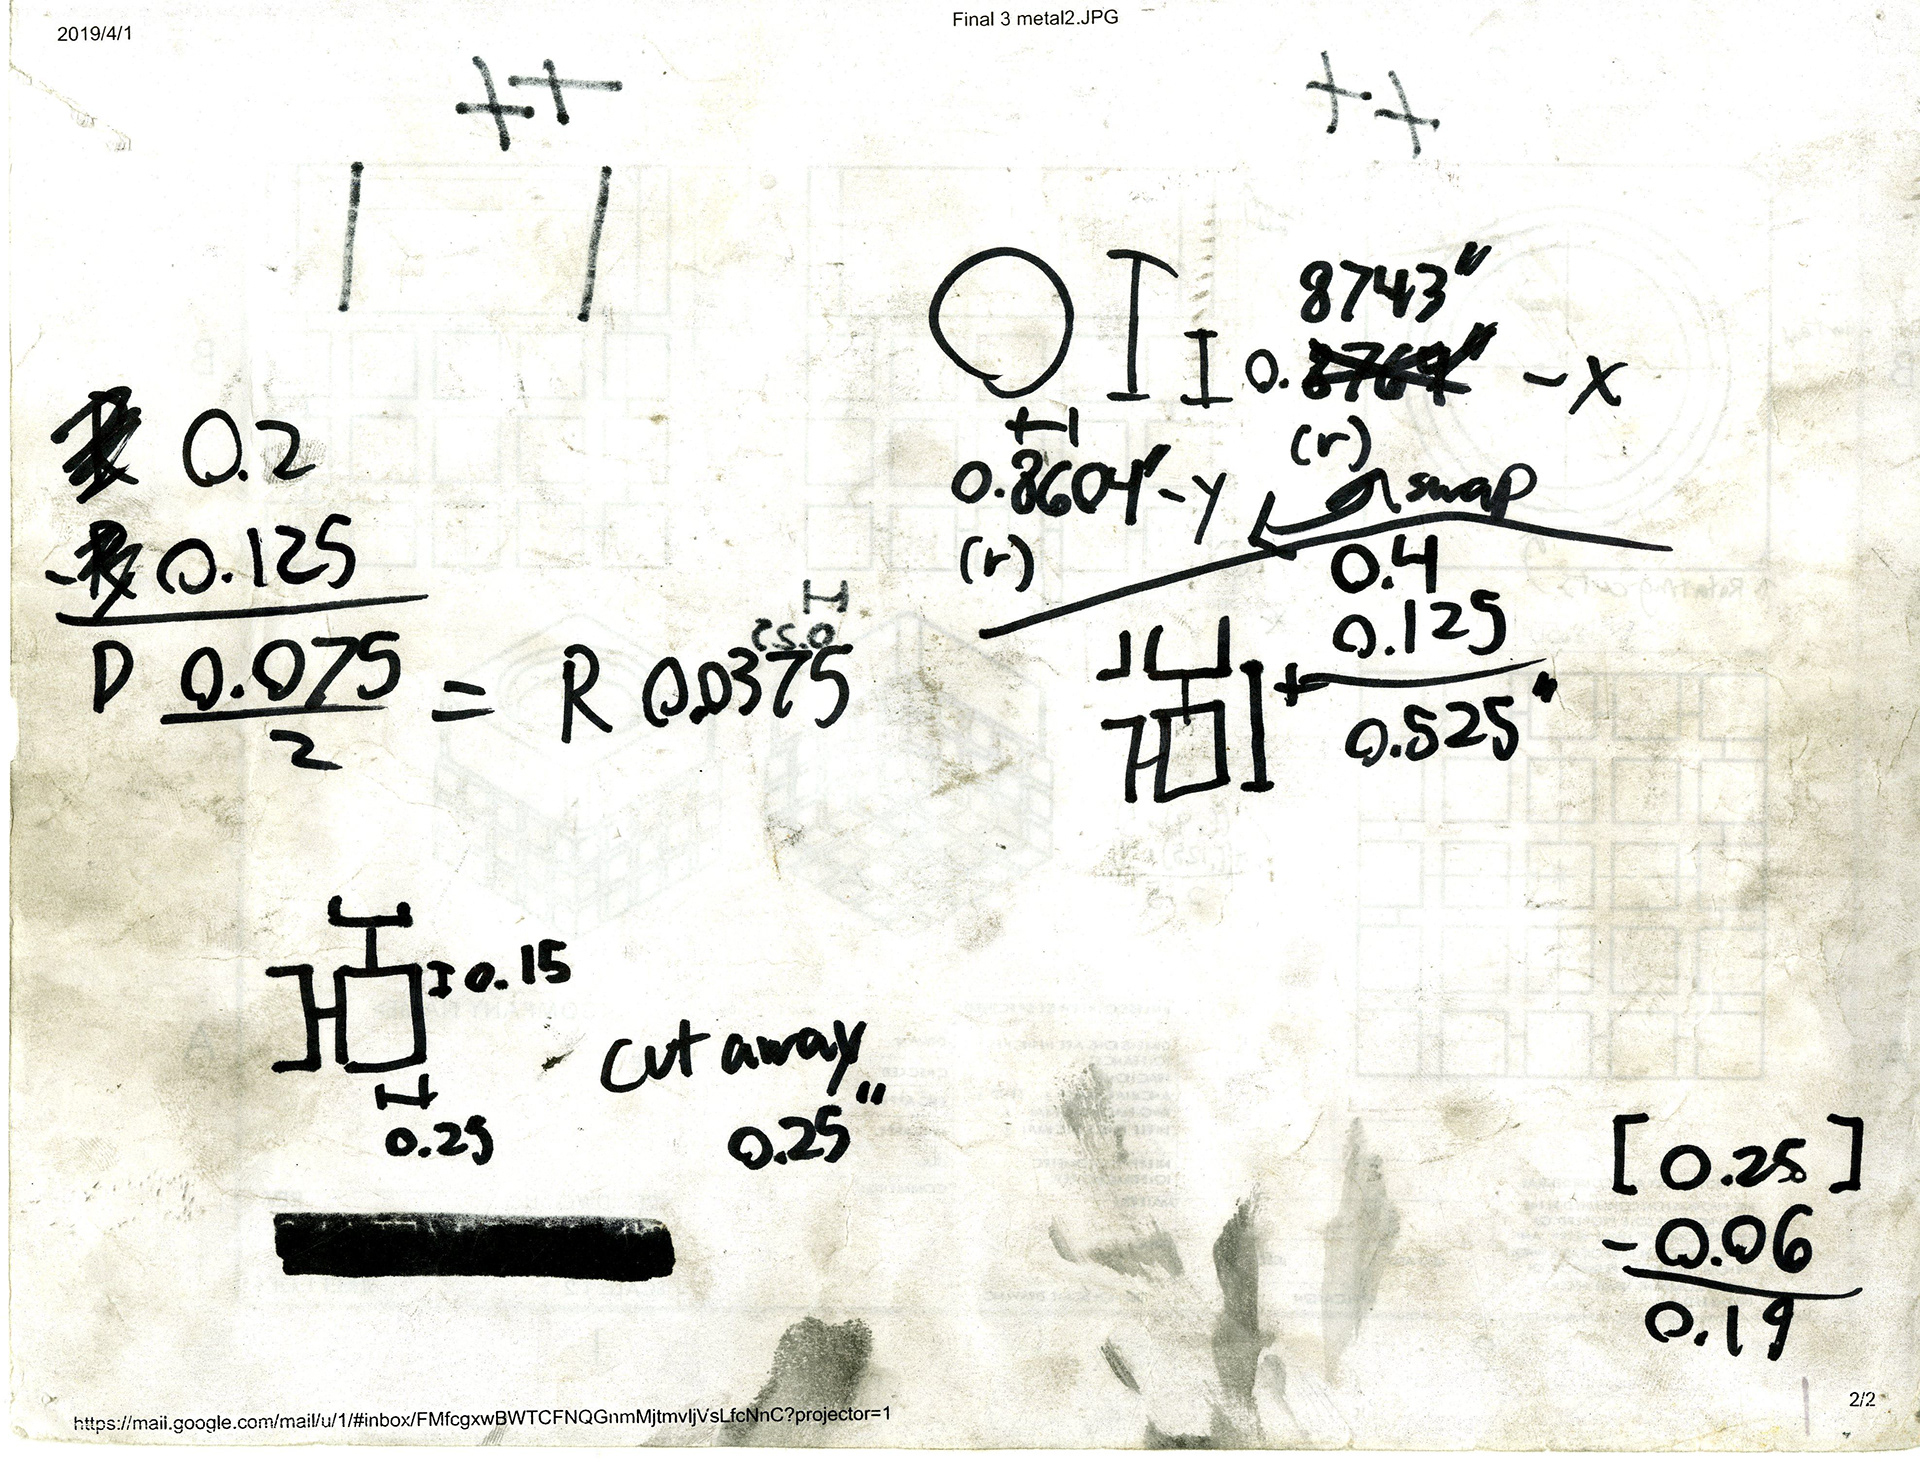 2019/4/1
Final 3 metal2.JPG
8743"
0. -x
(r)
0.8604"-y
(r)
swap
0.2
-0.125
D 0.075
2
= R 0.0375
0.25
0.4
0.125
+
0.525"
0.15
0.25
cut away
0.25"
[0.25]
-0.06
0.19
https://mail.google.com/mail/u/1/#inbox/FMfcgxwBWTCFNQGnmMjtmvljVsLfcNnC?projector=1
2/2